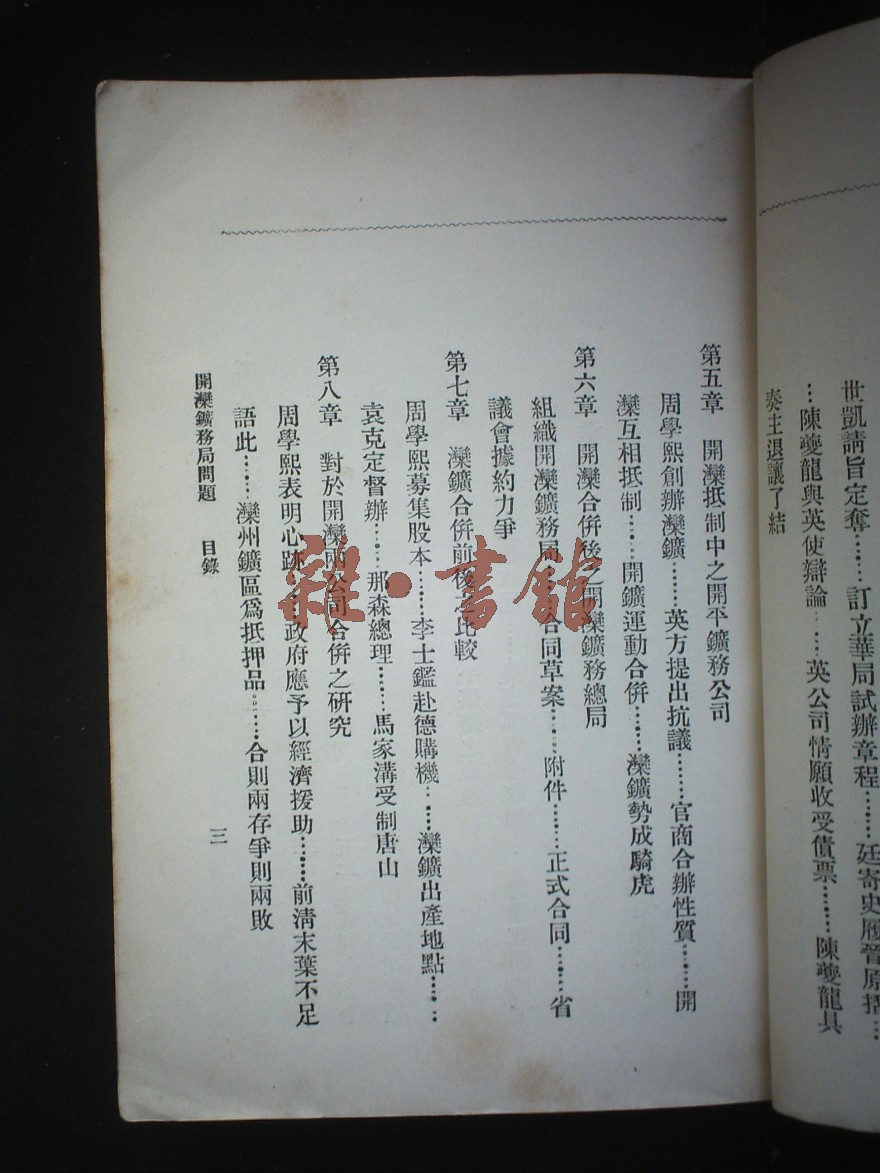 世凱請旨定奪……訂立華局試辦章程……廷寄史履晉原摺…
…陳夔龍與英使辯論……英公司情願收受債票……陳夔龍具
奏主退讓了結
第五章　開灤抵制中之開平鑛務公司
周學熙創辦灤鑛……英方提出抗議……官商合辦性質……開
灤互相抵制……開鑛運動合併……灤鑛勢成騎虎
第六章　開灤合併後之開灤鑛務總局
組織開灤鑛務局……合同草案……附件……正式合同……省
議會據約力爭
第七章　灤鑛合併前後之比較
周學熙募集股本……李士鑑赴德購機……灤鑛出產地點……
袁克定督辦……那森總理……馬家溝受制唐山
第八章　對於開灤兩公司合併之研究
周學熙表明心跡……政府應予以經濟援助……前清末葉不足
語此……灤州鑛區爲抵押品……合則兩存爭則兩敗
開灤鑛務局問題　目錄
三
雜·書館